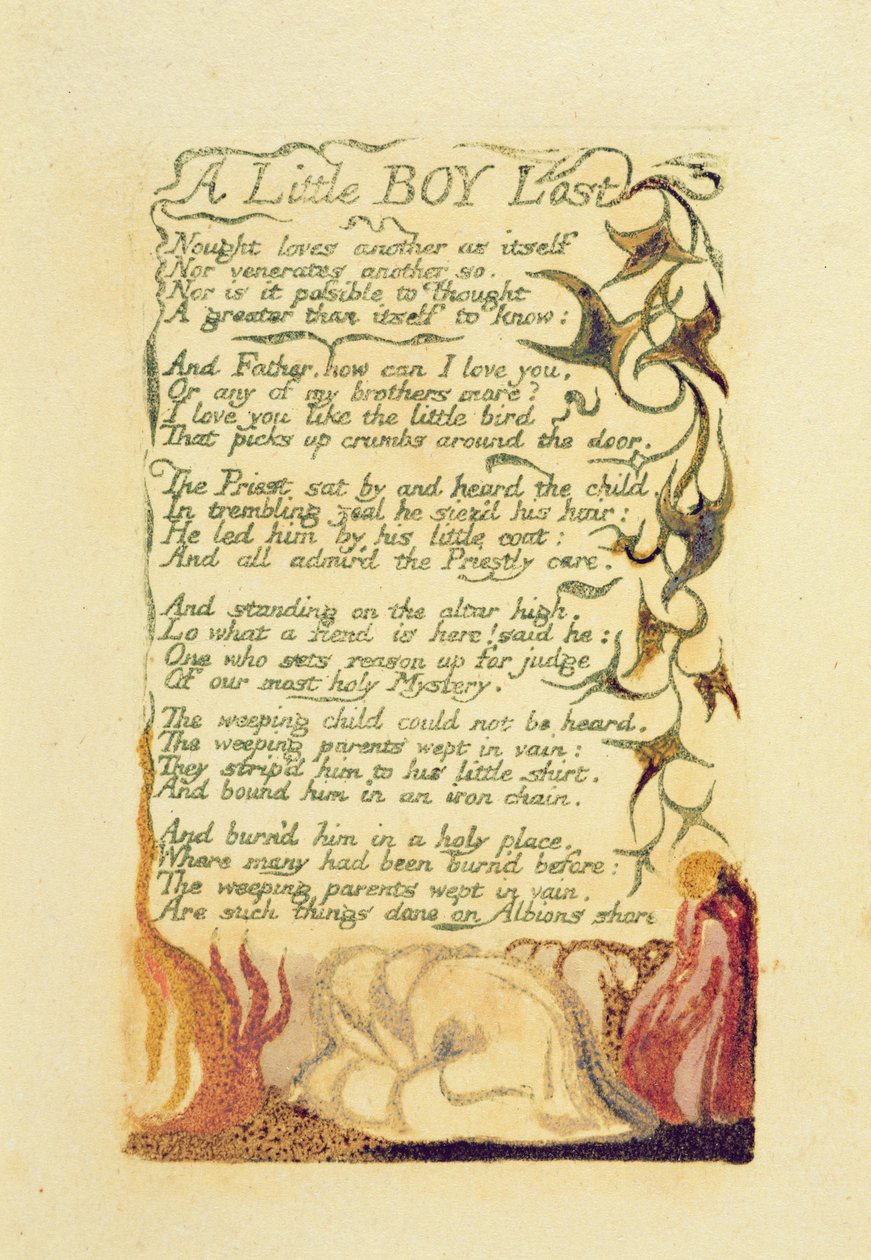 A Little BOY Lost
Nought loves another as itself
Nor venerates another so.
Nor is it poſsible to Thought
A greater than itself to know:
And Father, how can I love you,
Or any of my brothers more?
I love you like the little bird
That picks up crumbs around the door.
The Priest sat by and heard the child,
In trembling zeal he siez'd his hair:
He led him by his little coat:
And all admir'd the Priestly care.
And standing on the altar high,
Lo what a fiend is here! said he:
One who sets reason up for judge
Of our most holy Mystery.
The weeping child could not be heard,
The weeping parents wept in vain:
They strip'd him to his little shirt,
And bound him in an iron chain.
And burn'd him in a holy place,
Where many had been burn'd before:
The weeping parents wept in vain.
Are such things done on Albions shore